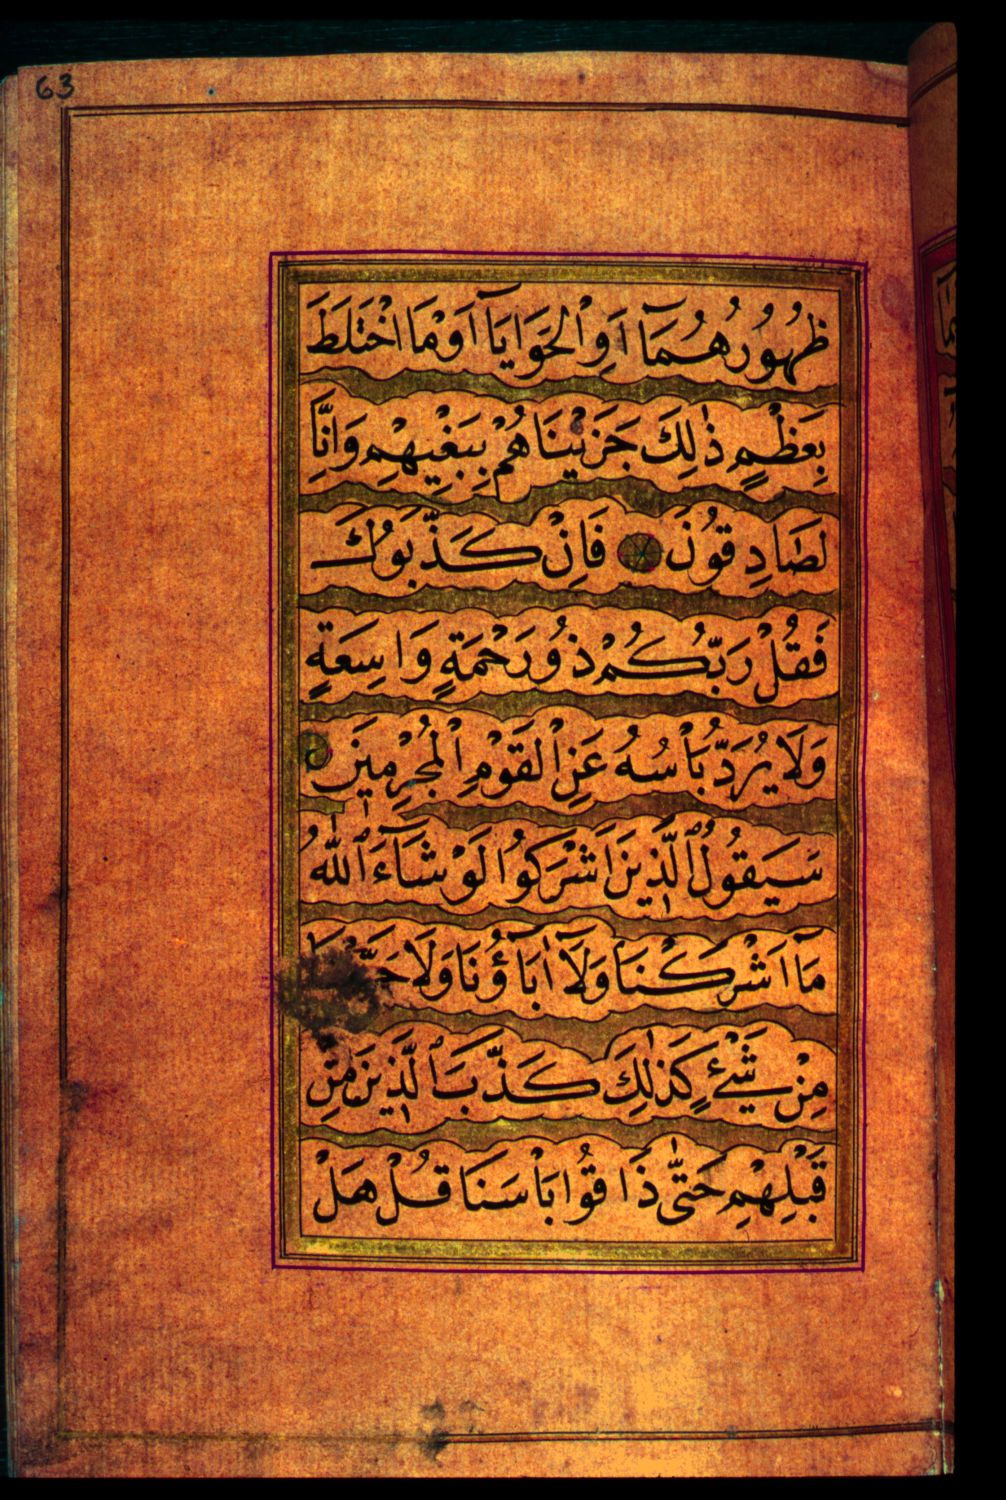 63
ظُهُورُهُمَآ اَوِ الْحَوَايَآ اَوْ مَا اخْتَلَطَ
بِعَظْمٍ ذٰلِكَ جَزَيْنَاهُمْ بِبَغْيِهِمْ وَاِنَّا
لَصَادِقُونَ فَاِنْ كَذَّبُوكَ
فَقُلْ رَبُّكُمْ ذُو رَحْمَةٍ وَاسِعَةٍ
وَلَا يُرَدُّ بَاْسُهُ عَنِ الْقَوْمِ الْمُجْرِمِينَ
سَيَقُولُ الَّذِينَ اَشْرَكُوا لَوْ شَآءَ اللّٰهُ
مَآ اَشْرَكْنَا وَلَآ اٰبَآؤُنَا وَلَا
مِنْ شَيْءٍ كَذٰلِكَ كَذَّبَ الَّذِينَ مِنْ
قَبْلِهِمْ حَتّٰى ذَاقُوا بَاْسَنَا قُلْ هَلْ